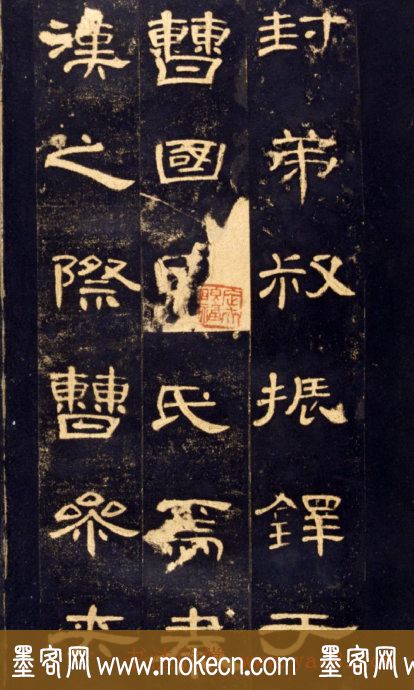 封弟叔振鐸于
曹國因氏焉秦
漢之際曹參夾
墨客网 www.mokecn.com 墨客网